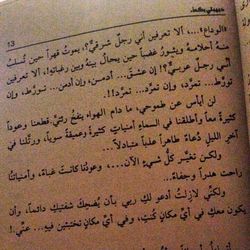 حبيبتي بكماء
13
«الوداع؟...، ألا تعرفين أني رجل شرقيّ؟، يموت قهراً حين تُسلب
منه أحلامه ويثور غضباً حين يحال بينه وبين رغباته!، ألا تعرفين
أنّي رجل عربيّ؟! إن عشق... أدمن، وإن أدمن... تورّط، وإن
تورّط... تمرّد، وإن تمرّد... تمرّد!!.
لن أيأس عن طموحي، ما دام الهواء يفتح رئتيّ. قطعنا وعوداً
كثيرة معاً وأطلقنا في السماء أمنياتٍ كثيرة وعميقة سوياً، ورتّلنا في
آخر الليل دُعاءً طاهراً علنياً متبادلاً...
ولكن تغيّر كلّ شيءٍ الآن...، وعودُنا كانت عَباءً، وأمنياتُنا
راحت هدراً وجفاءً.
ولكنّي لازلت أدعو لك ربي بأن يُضحِكَ شفتيكِ دائماً، وأن
يكون معكِ في أيّ مكانٍ كنتِ، وفي أيّ مكانٍ تختبئين فيه... عنّي!.